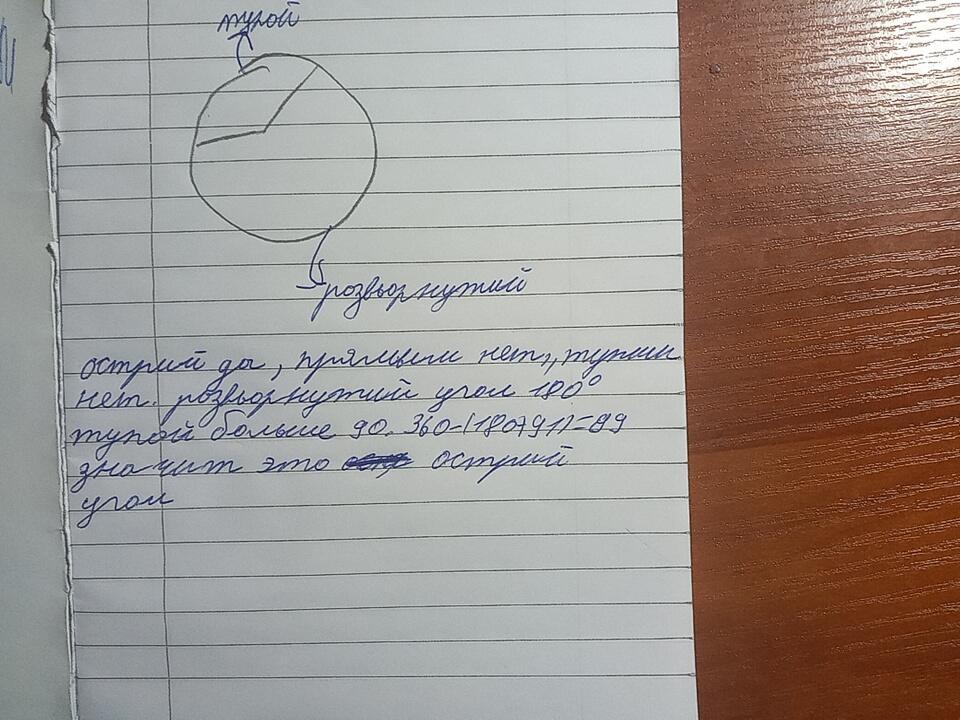 тупой
розвьорнутий
острий да, прямым нет, тупим
нет. розвьорнутий угол 180°
тупой больше 90. 360-(180+91)=89
значит это острий
угол